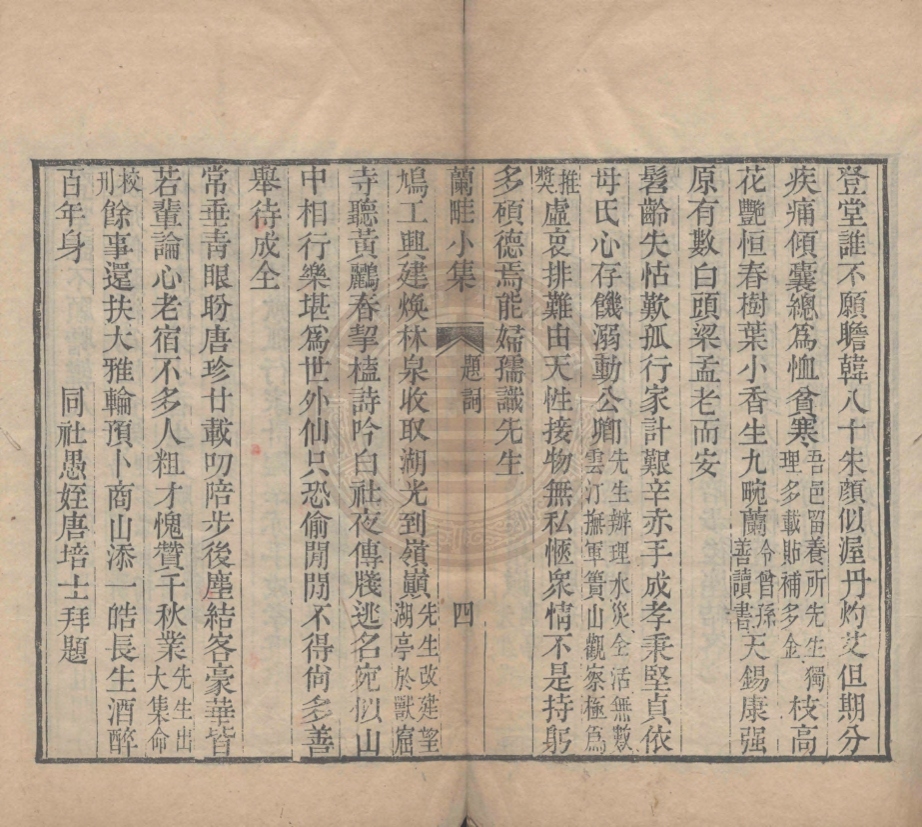 登堂誰不願瞻韓八十朱顏似渥丹灼艾但期分
疾痛傾囊總爲恤貧寒吾邑留養所先生獨理多載貼補多金枝高
花艷恒春樹葉小香生九畹蘭令曾孫善讀書天錫康强
原有數白頭梁孟老而安
髫齡失怙歎孤行家計艱辛赤手成孝秉堅貞依
母氏心存饑溺動公卿先生辦理水災全活無數雲汀撫軍簣山觀察極爲
推奬虛衷排難由天性接物無私愜衆情不是持躬
多碩德焉能婦孺識先生
蘭畦小集 題詞 四
鳩工興建煥林泉收取湖光到嶺巔先生改建望湖亭於獸窟
寺聽黃鸝春挈榼詩吟白社夜傳牋逃名宛似山
中相行樂堪爲世外仙只恐偷閒閒不得尙多善
舉待成全
常垂靑眼盼唐珍廿載叨陪步後塵結客豪華皆
若輩論心老宿不多人粗才愧贊千秋業先生出大集命
校刊餘事還扶大雅輪預卜商山添一皓長生酒醉
百年身　同社愚姪唐培士拜題